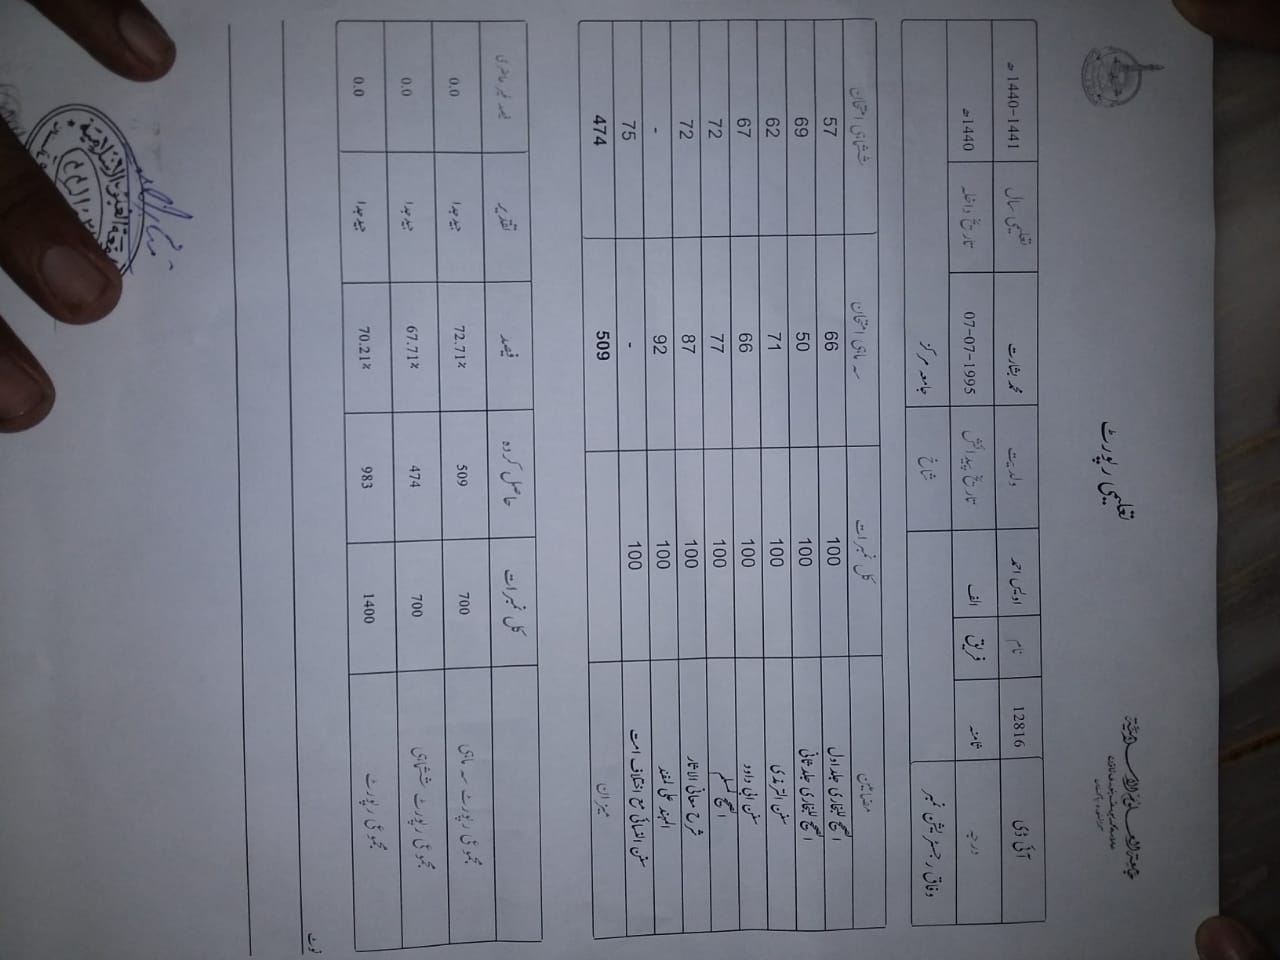 تعلیمی رپورٹ
آئی ڈی 12816 نام اویس احمد ولدیت محمد بشارت تعلیمی سال 1440-1441ھ
درجہ ثامنہ فریق الف تاریخ پیدائش 07-07-1995 تاریخ داخلہ 1440ھ
وفاق رجسٹریشن نمبر شاخ جامعہ مرکز
مضامین کل نمبرات سہ ماہی امتحان ششماہی امتحان
الصحیح للبخاری جلد اول 100 66 57
الصحیح للبخاری جلد ثانی 100 50 69
سنن الترمذی 100 71 62
سنن ابی داود 100 66 67
الصحیح لمسلم 100 77 72
شرح معانی الاثار 100 87 72
المہند علی المفند 100 92 -
سنن النسائی مع اختلاف امت 100 - 75
میزان 509 474
کل نمبرات حاصل کردہ فیصد تقدیر فیصد غیر حاضری
مجموعی رپورٹ سہ ماہی 700 509 72.71% جید جدا 0.0
مجموعی رپورٹ ششماہی 700 474 67.71% جید جدا 0.0
مجموعی رپورٹ 1400 983 70.21% جید جدا 0.0
نوٹ